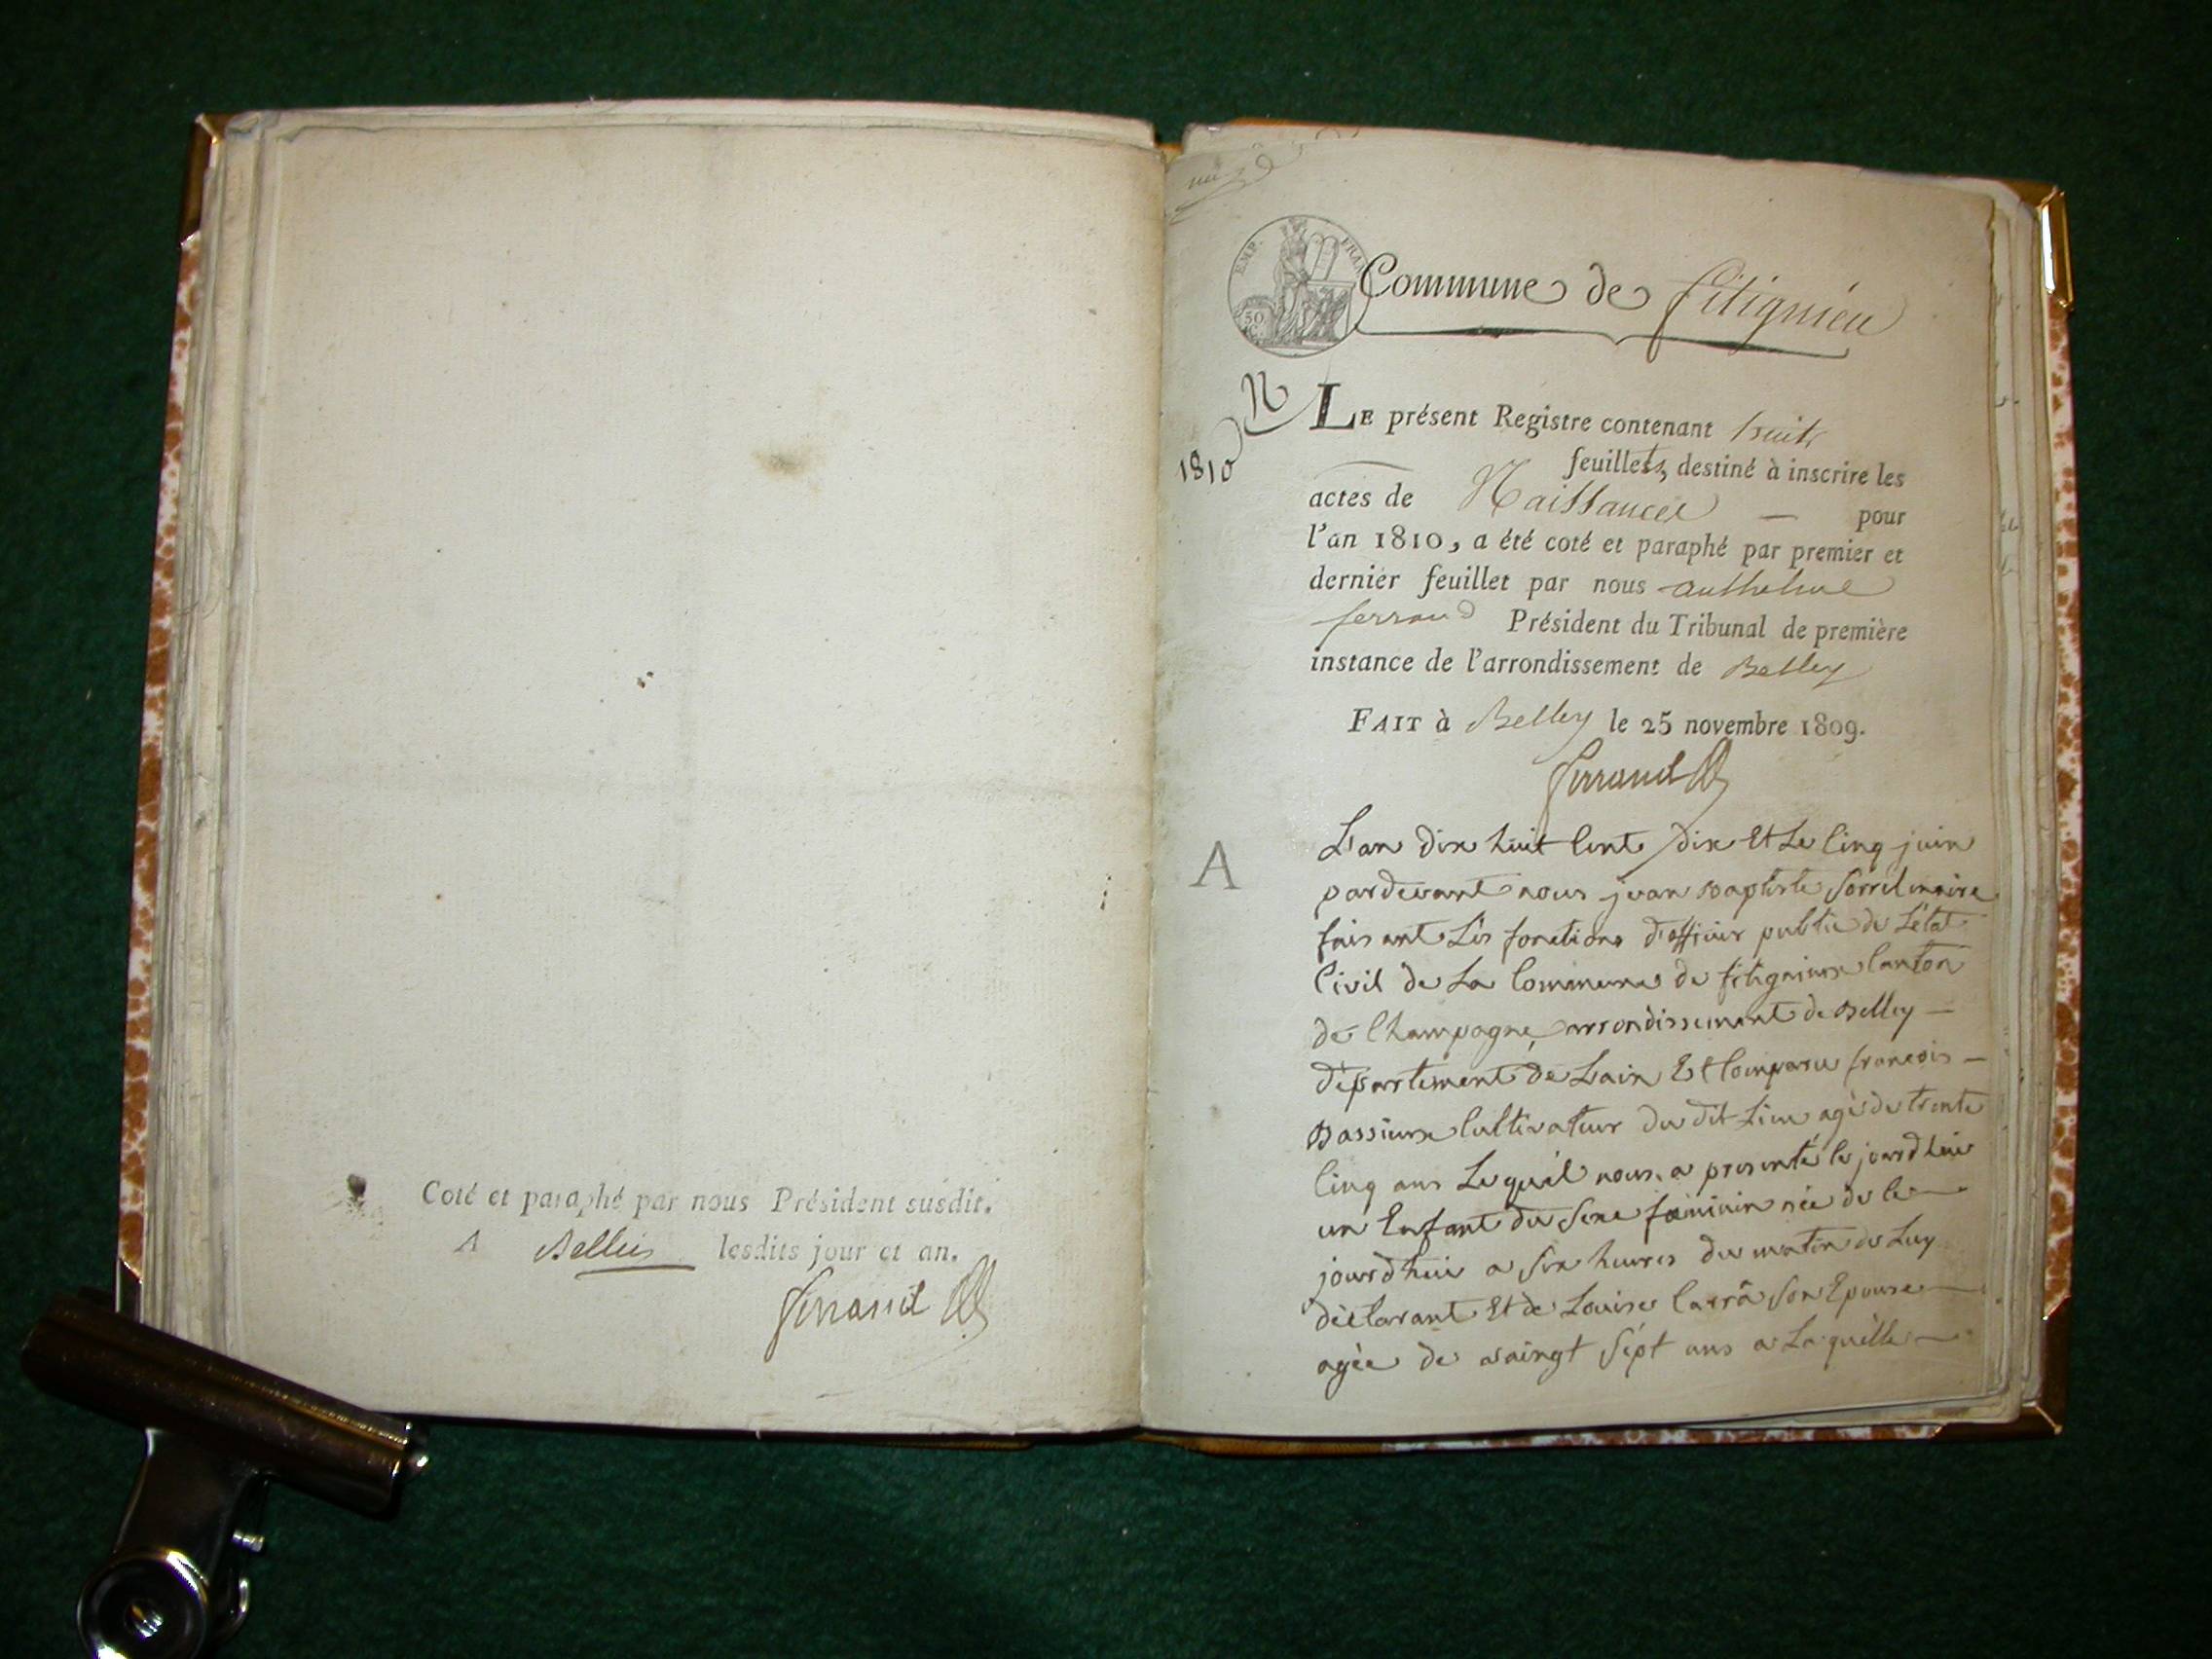 Coté et paraphé par nous Président susdit.
A Belley lesdits jour et an.
Ferrand
EMP. FRAN
50 C.
Commune de fitignieu
N
1810
LE présent Registre contenant huit
feuillets, destiné à inscrire les
actes de Naissances — pour
l'an 1810, a été coté et paraphé par premier et
dernier feuillet par nous anthelme
ferrand Président du Tribunal de première
instance de l'arrondissement de Belley
FAIT à Belley le 25 novembre 1809.
Ferrand
A
L'an dix huit Cent dix Et Le Cinq juin
pardevant nous jean Baptiste maire
faisant Les fonctions d'officier public de L'état
Civil de La Commune de fitignieux Canton
de Champagne arrondissement de Belley —
département de Lain Et Comparu francois —
Bassieux Cultivateur du dit Lieu agé de trente
Cinq ans Lequél nous a presenté le jourdhui
un Enfant du Sexe féminin née de Ce —
jourdhui a six heures du matin de Luy
déclarant Et de Louise Carrâ son Epouse —
agée de vaingt sépt ans a Laquélle —